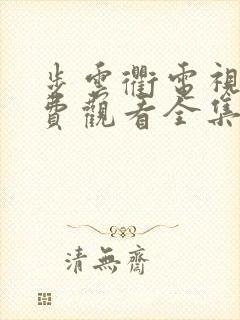 步雲衢電視
費觀看全集
清無齋